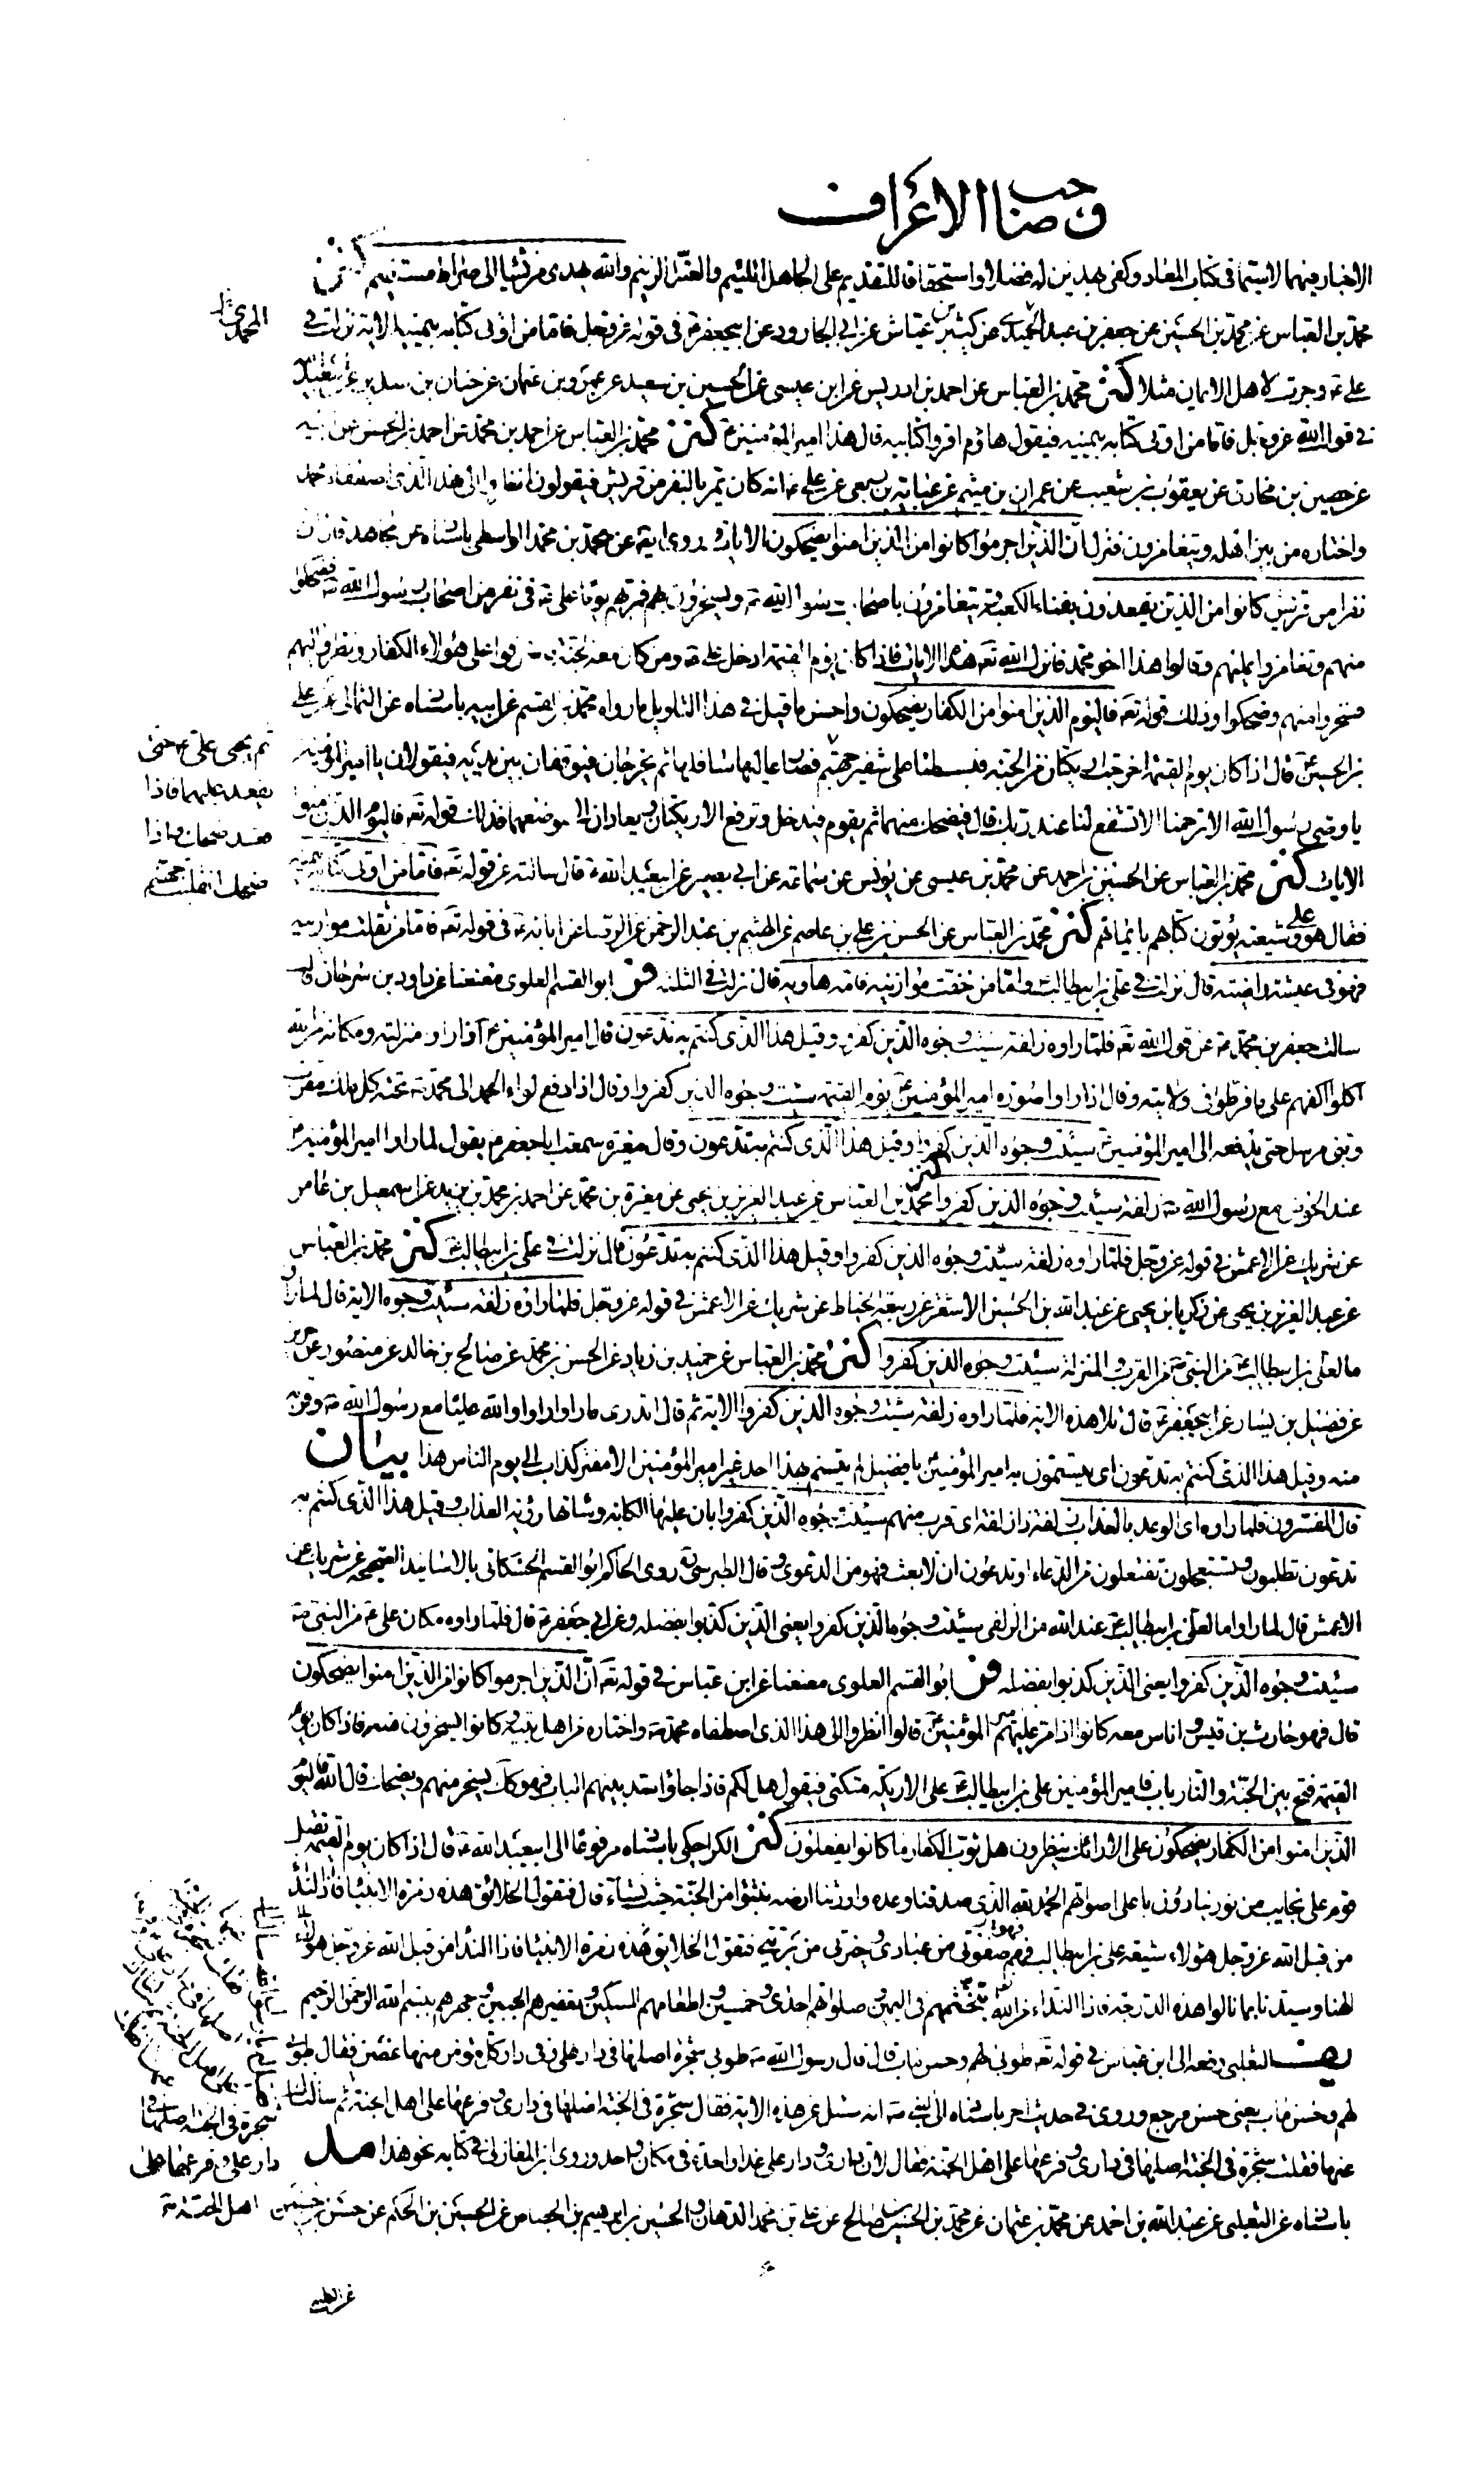 و صاحب الاعراف
الاخبار فيهما لاسيما فى كتاب المعاد وكفى بهذين له فضلا واستحقاقا للتقديم على الجاهل اللئيم والعتل الزنيم والله يهدى من يشاء الى صراط مستقيم كنز
محمد بن العباس عن محمد بن الحسين عن جعفر بن عبد الله المحمدى عن كثير بن عياش عن ابى الجارود عن ابيجعفر ع فى قوله عزوجل فاما من اوتى كتابه بيمينه الاية نزلت فى
المحمدى
على ع وجرت لاهل الايمان مثلا كنز محمد بن العباس عن احمد بن ادريس عن ابن عيسى عن الحسين بن سعيد عن عمرو بن عثمان عن حنان بن سدير عن
فى قول الله عزوجل فاما من اوتى كتابه بيمينه فيقول هاؤم اقرؤا كتابيه قال هذا امير المؤمنين ع كنز محمد بن العباس عن احمد بن محمد عن احمد بن الحسن عن ابيه
عن حصين بن مخارق عن يعقوب بن شعيب عن عمران بن ميثم عن عباية بن ربعى عن على ع انه كان يمر بالنفر من قريش فيقولون انظروا الى هذا الذى اصطفاه محمد
واختاره من بين اهله ويتغامزون فنزل ان الذين اجرموا كانوا من الذين امنوا يضحكون الايات و روى ايضا عن محمد بن محمد الواسطى باسناده عن مجاهد قال ان
نفرا من قريش كانوا من الذين يقعدون بفناء الكعبة فيتغامزون باصحاب رسول الله ص ويسخرون بهم فمر بهم يوما على ع فى نفر من اصحاب رسول الله ص فضحكوا
منهم وتغامزوا عليهم وقالوا هذا اخو محمد فانزل الله تعه هذه الايات فاذا كان يوم القيمة ادخل على ع ومن كان معه الجنة فاشرفوا على هؤلاء الكفار ونظروا اليهم
فسخروا منهم وضحكوا وذلك قوله تعه فاليوم الذين امنوا من الكفار يضحكون واحسن ما قيل فى هذا التاويل ما رواه محمد بن القسم عن ابيه باسناده عن الثمالى عن على
بن الحسين ع قال اذا كان يوم القيمة اخرجت اريكتان من الجنة فبسطتا على شفير جهنم
ثم يجى على ع حتى
يقعد عليهما فاذا
قعد ضحك واذا
ضحك انقلبت جهنم
فصار عاليها سافلها ثم يخرجان فيوقفان بين يديه فيقولان يا امير المؤمنين
يا وصى رسول الله الا ترحمنا الا تشفع لنا عند ربك قال فيضحك منهما ثم يقوم فيدخل وترفع الاريكتان ويعادان الى موضعهما فذلك قوله تعه فاليوم الذين امنوا
الايات كنز محمد بن العباس عن الحسين بن احمد عن محمد بن عيسى عن يونس عن سماعة عن ابى بصير عن ابيعبد الله ع قال سالته عن قوله تعه فاما من اوتى كتابه بيمينه
فقال هو على وشيعته يؤتون كتابهم بايمانهم كنز محمد بن العباس عن الحسن بن على بن عاصم عن الهيثم بن عبد الرحمن عن الرضا عن ابائه ع فى قوله تعه فاما من ثقلت موازينه
فهو فى عيشة راضية قال نزلت فى على بن ابيطالب ع واما من خفت موازينه فامه هاوية قال نزلت فى الثلثة فر ابو القسم العلوى معنعنا عن داود بن سرحان قال
سالت جعفر بن محمد ع عن قول الله تعه فلما راوه زلفة سيئت وجوه الذين كفروا وقيل هذا الذى كنتم به تدعون قال امير المؤمنين ع اذا راوا منزلته ومكانه من الله
اكلوا اكفهم على ما فرطوا فى ولايته وقال اذا راوا صورة امير المؤمنين ع يوم القيمة سيئت وجوه الذين كفروا وقال اذا دفع لواء الحمد الى محمد ص تحته كل ملك مقرب
ونبى مرسل حتى يدفعه الى امير المؤمنين ع سيئت وجوه الذين كفروا وقيل هذا الذى كنتم به تدعون وقال مغيرة سمعت اباجعفر ع يقول لما راوا امير المؤمنين ع
عند الحوض مع رسول الله ص زلفة سيئت وجوه الذين كفروا كنز محمد بن العباس عن عبد العزيز بن يحيى عن مغيرة بن محمد عن احمد بن محمد بن يزيد عن اسمعيل بن عامر
عن شريك عن الاعمش فى قوله عزوجل فلما راوه زلفة سيئت وجوه الذين كفروا وقيل هذا الذى كنتم به تدعون قال نزلت فى على بن ابيطالب ع كنز محمد بن العباس
عن عبد العزيز بن يحيى عن زكريا بن يحيى عن عبد الله بن الحسين الاشقر عن ربيعة الخياط عن شريك عن الاعمش فى قوله عزوجل فلما راوه زلفة سيئت وجوه الاية قال لما راوا
ما لعلى بن ابيطالب ع من النبى ص من القرب والمنزلة سيئت وجوه الذين كفروا كنز محمد بن العباس عن حميد بن زياد عن الحسن بن محمد عن صالح بن خالد عن منصور عن حريز
عن فضيل بن يسار عن ابيجعفر ع قال تلا هذه الاية فلما راوه زلفة سيئت وجوه الذين كفروا الاية ثم قال اتدرى ما راوا راوا والله عليا مع رسول الله ص وقربه
منه وقيل هذا الذى كنتم به تدعون اى يتسمون به امير المؤمنين ع يا فضيل لم يتسم بهذا احد غير امير المؤمنين الا مفتر كذاب الى يوم الناس هذا بيان
قال المفسرون فلما راوه اى الوعد بالعذاب زلفة ذا زلفة اى قرب منهم سيئت وجوه الذين كفروا بان عليها الكابة وسائتها رؤية العذاب وقيل هذا الذى كنتم به
تدعون تطلبون وتستعجلون تفتعلون من الدعاء او تدعون ان لا بعث فهو من الدعوى وقال الطبرسى ره روى الحاكم ابو القسم الحسكانى بالاسانيد الصحيحة عن شريك عن
الاعمش قال لما راوا ما لعلى بن ابيطالب ع عند الله من الزلفى سيئت وجوه الذين كفروا يعنى الذين كذبوا بفضله وعن ابى جعفر ع قال فلما راوه مكان على ع من النبى ص
سيئت وجوه الذين كفروا يعنى الذين كذبوا بفضله فر ابو القسم العلوى معنعنا عن ابن عباس فى قوله تعه ان الذين اجرموا كانوا من الذين امنوا يضحكون
قال فهو حارث بن قيس واناس معه كانوا اذا مر عليهم امير المؤمنين ع قالوا انظروا الى هذا الذى اصطفاه محمد ص واختاره من اهل بيته وكانوا يسخرون منه فاذا كان يوم
القيمة فتح بين الجنة والنار باب فامير المؤمنين على بن ابيطالب ع على الاريكة متكئ فيقول هل لكم فاذا جاؤا استد بينهم الباب فهو كك يسخر منهم ويضحك قال الله فاليوم
الذين امنوا من الكفار يضحكون على الارائك ينظرون هل ثوب الكفار ما كانوا يفعلون كنز الكراجكى باسناده مرفوعا الى ابيعبد الله ع قال اذا كان يوم القيمة تقبل
قوم على نجايب من نور ينادون باعلى اصواتهم الحمد لله الذى صدقنا وعده واورثنا ارضه نتبوا من الجنة حيث نشاء قال فتقول الخلائق هذه زمرة الانبياء فاذا النداء
من قبل الله عزوجل هؤلاء شيعة على بن ابيطالب فهو صفوتى من عبادى وخيرتى من بريتى فتقول الخلايق الهنا وسيدنا بما نالوا هذه الدرجة فاذا النداء من الله
بتختمهم فى اليمين وصلوتهم احدى وخمسين واطعامهم المسكين وتعفيرهم الجبين وجهرهم ببسم الله الرحمن الرحيم
يف الثعلبى رفعه الى ابن عباس فى قوله تعه طوبى لهم وحسن ماب قال قال رسول الله ص طوبى شجرة اصلها فى دار على وفى دار كل مؤمن منها غصن فقال طوبى
لهم وحسن ماب يعنى حسن مرجع وروى فى حديث اخر باسناده الى النبى ص انه سئل عن هذه الاية فقال شجرة فى الجنة اصلها فى دارى وفرعها على اهل الجنة ثم سالت
شجرة فى الجنة اصلها فى
دار على وفرعها على
اهل الجنة
عنها فقلت شجرة فى الجنة اصلها فى دارى وفرعها على اهل الجنة فقال لان دارى ودار على غدا واحدة فى مكان واحد وروى ابن المغازلى فى كتابه نحو هذا مد
باسناده عن الثعلبى عن عبد الله بن احمد عن محمد بن عثمان عن محمد بن الحسين بن صالح عن على بن محمد الدهان والحسين بن ابراهيم بن الجصاص عن الحسين بن الحكم عن حسن بن حسين